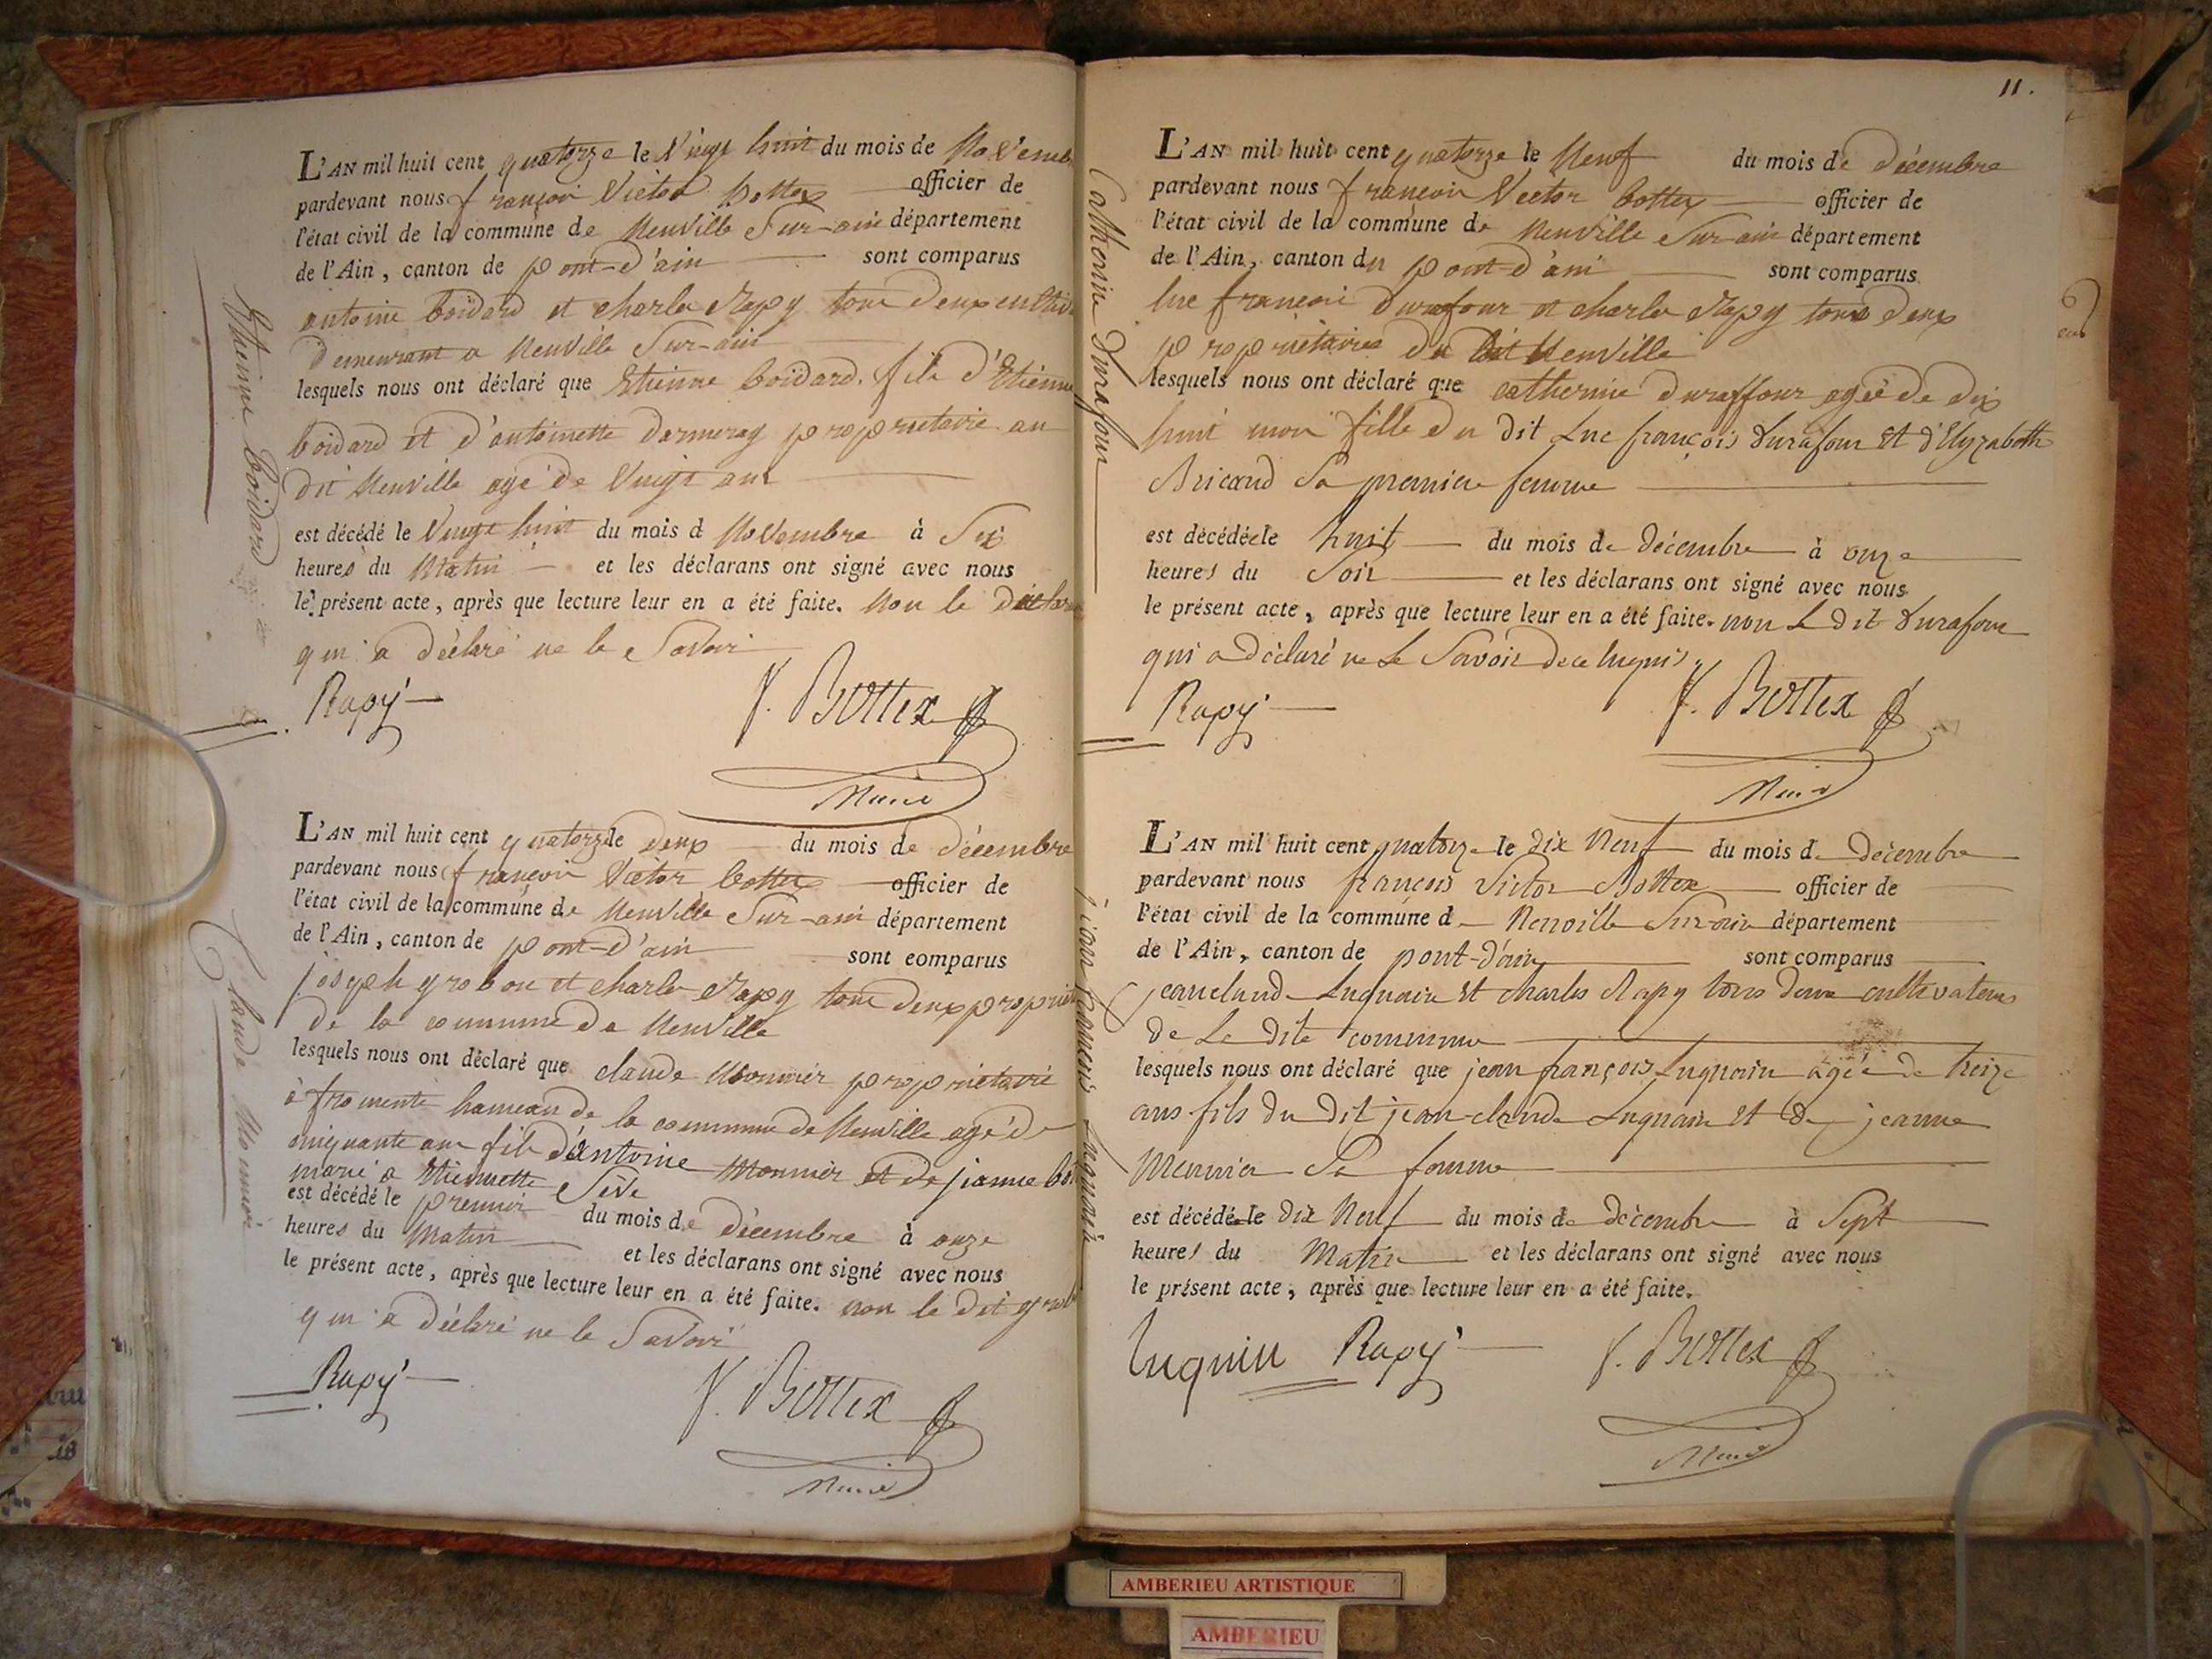 L'AN mil huit cent quatorze le Vingt huit du mois de Novemb
pardevant nous françois Victor Bottex officier de
l'état civil de la commune de Neuville Sur-ain département
de l'Ain, canton de pont-d'ain sont comparus
antoine boidard et charles Rapy tous deux cultiv
demeurant a Neuville Sur-ain
lesquels nous ont déclaré que Etienne boidard fils d'Etienne
boidard et d'antoinette proprietaire au
dit Neuville agé de Vingt ans
est décédé le Vingt huit du mois d Novembre à Six
heures du Matin et les déclarans ont signé avec nous
le présent acte, après que lecture leur en a été faite. Non le
qui a déclaré ne le Savoir
Rapy F. Bottex
Maire
Etienne boidard
L'AN mil huit cent quatorze le deux du mois de décembre
pardevant nous françois Victor bottex officier de
l'état civil de la commune de Neuville Sur-ain département
de l'Ain, canton de pont-d'ain sont comparus
joseph grobon et charles Rapy tous deux propriet
de la commune de Neuville
lesquels nous ont déclaré que claude Monnier proprietaire
à fromente hameau de la commune de Neuville agé de
cinquante ans fils d'antoine Monnier et de jeanne
marié a Etiennette Sève
est décédé le premier du mois de décembre à onze
heures du Matin et les déclarans ont signé avec nous
le présent acte, après que lecture leur en a été faite. non le dit grob
qui a déclaré ne le Savoir
Rapy F. Bottex
Maire
Claude Monnier
11.
L'AN mil huit cent quatorze le Neuf du mois de décembre
pardevant nous françois Victor bottex officier de
l'état civil de la commune de Neuville Sur-ain département
de l'Ain, canton du pont-d'ain sont comparus
luc françois durafour et charles Rapy tous deux
propriétaires du dit Neuville
lesquels nous ont déclaré que catherine duraffour agée de dix
huit mois fille du dit Luc françois Durafour et d'Elyzabeth
Bricand Sa premiere femme
est décédée le huit du mois de décembre à onze
heures du Soir et les déclarans ont signé avec nous
le présent acte, après que lecture leur en a été faite. non Le dit Durafour
qui a déclaré ne Le Savoir de ce Enquis.
Rapy F. Bottex
Maire
Catherine Durafour
L'AN mil huit cent quatorze le dix Neuf du mois de décembre
pardevant nous françois Victor Bottex officier de
l'état civil de la commune de Neuville Sur-ain département
de l'Ain, canton de pont-d'ain sont comparus
jeanclaude Luquain et charles Rapy tous deux cultivateurs
de La dite commune
lesquels nous ont déclaré que jean françois Luquain agée de treize
ans fils du dit jean-claude Luquain et de jeanne
Meunier Sa femme
est décédé le dix Neuf du mois de décembre à Sept
heures du Matin et les déclarans ont signé avec nous
le présent acte, après que lecture leur en a été faite.
luquin Rapy F. Bottex
Maire
jean francois Luquain
AMBERIEU ARTISTIQUE
AMBERIEU